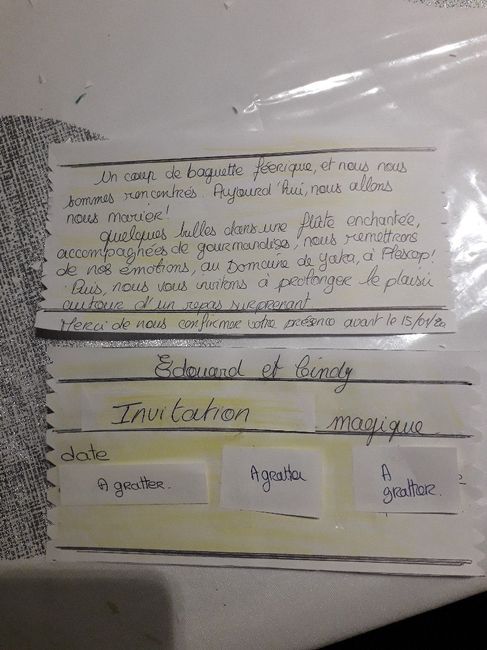 Un coup de baguette féerique, et nous nous
sommes rencontrés. Aujourd'hui, nous allons
nous marier!
quelques bulles dans une flûte enchantée,
accompagnées de gourmandises, nous remettrons
de nos émotions, au Domaine de Yaka, à Plescop!
Puis, nous vous invitons à prolonger le plaisir
autour d'un repas surprenant
Merci de nous confirmer votre présence avant le 15/01/20
Edouard et Cindy
Invitation magique
date
A gratter. A gratter A
gratter.